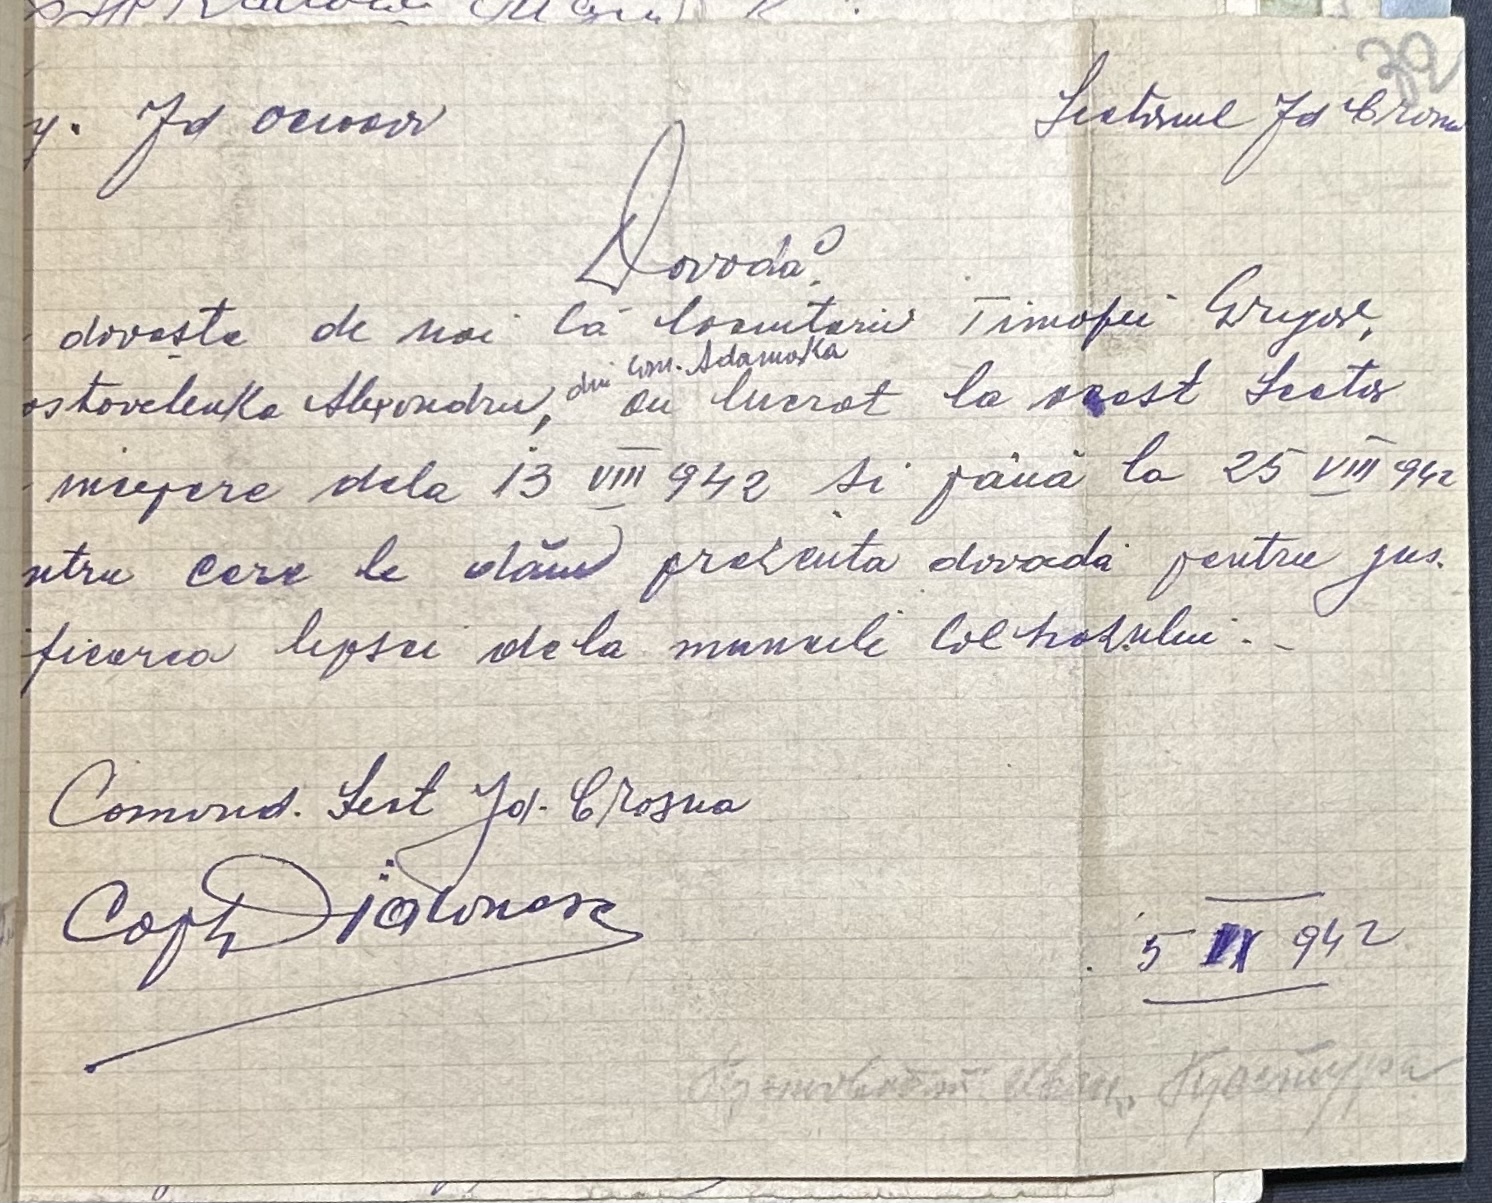 39
y. Jd Ocwoi
Sectorul Jd Crosna
Dovadă
dovește de noi că locuitorii Timofei Grigore,
ostovelenka Alexandru, din Com. Adamovka au lucrat la acest Sector
incepere dela 13 VIII 942 si până la 25 VIII 942
ntru care le dăm prezenta dovadă pentru jus.
ficarea lipsei dela muncile Colhozului.-
Comand. Sect Jd. Crosna
Capt Diaconescu
5 IX 942